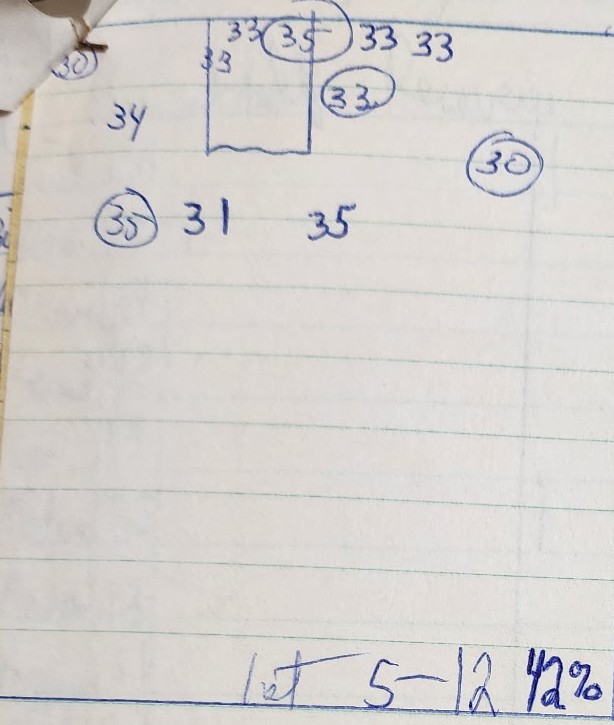 33 35 33 33
30 33
34 33
30
35 31 35
1st 5-12 42%